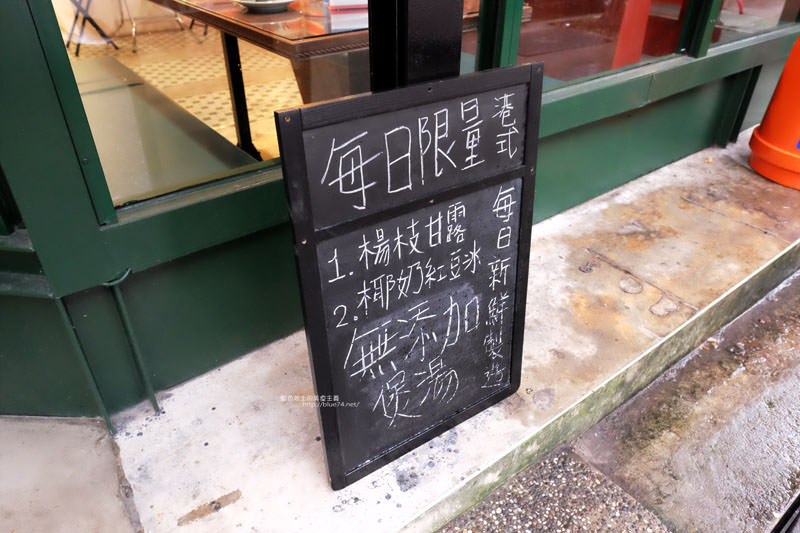 每日限量
港式
1. 楊枝甘露
2. 椰奶紅豆冰
無添加
煲湯
每日新鮮製造
藍色起士的美食主義
http://blue74.net/